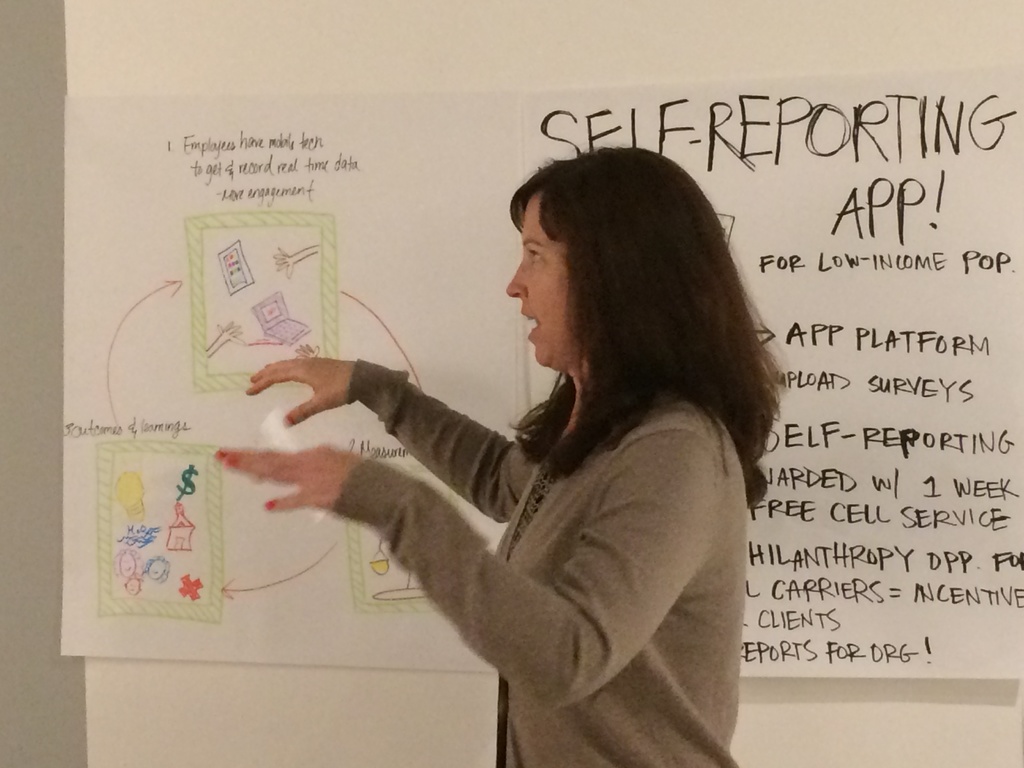 1. Employees have mobile tech
to get & record real time data
- more engagement
3 Outcomes & learnings
2 Measurem
$
H2O
SELF-REPORTING
APP!
FOR LOW-INCOME POP.
→ APP PLATFORM
UPLOAD SURVEYS
SELF-REPORTING
WARDED W/ 1 WEEK
FREE CELL SERVICE
HILANTHROPY OPP. FO
L CARRIERS = INCENTIVE
CLIENTS
EPORTS FOR ORG!